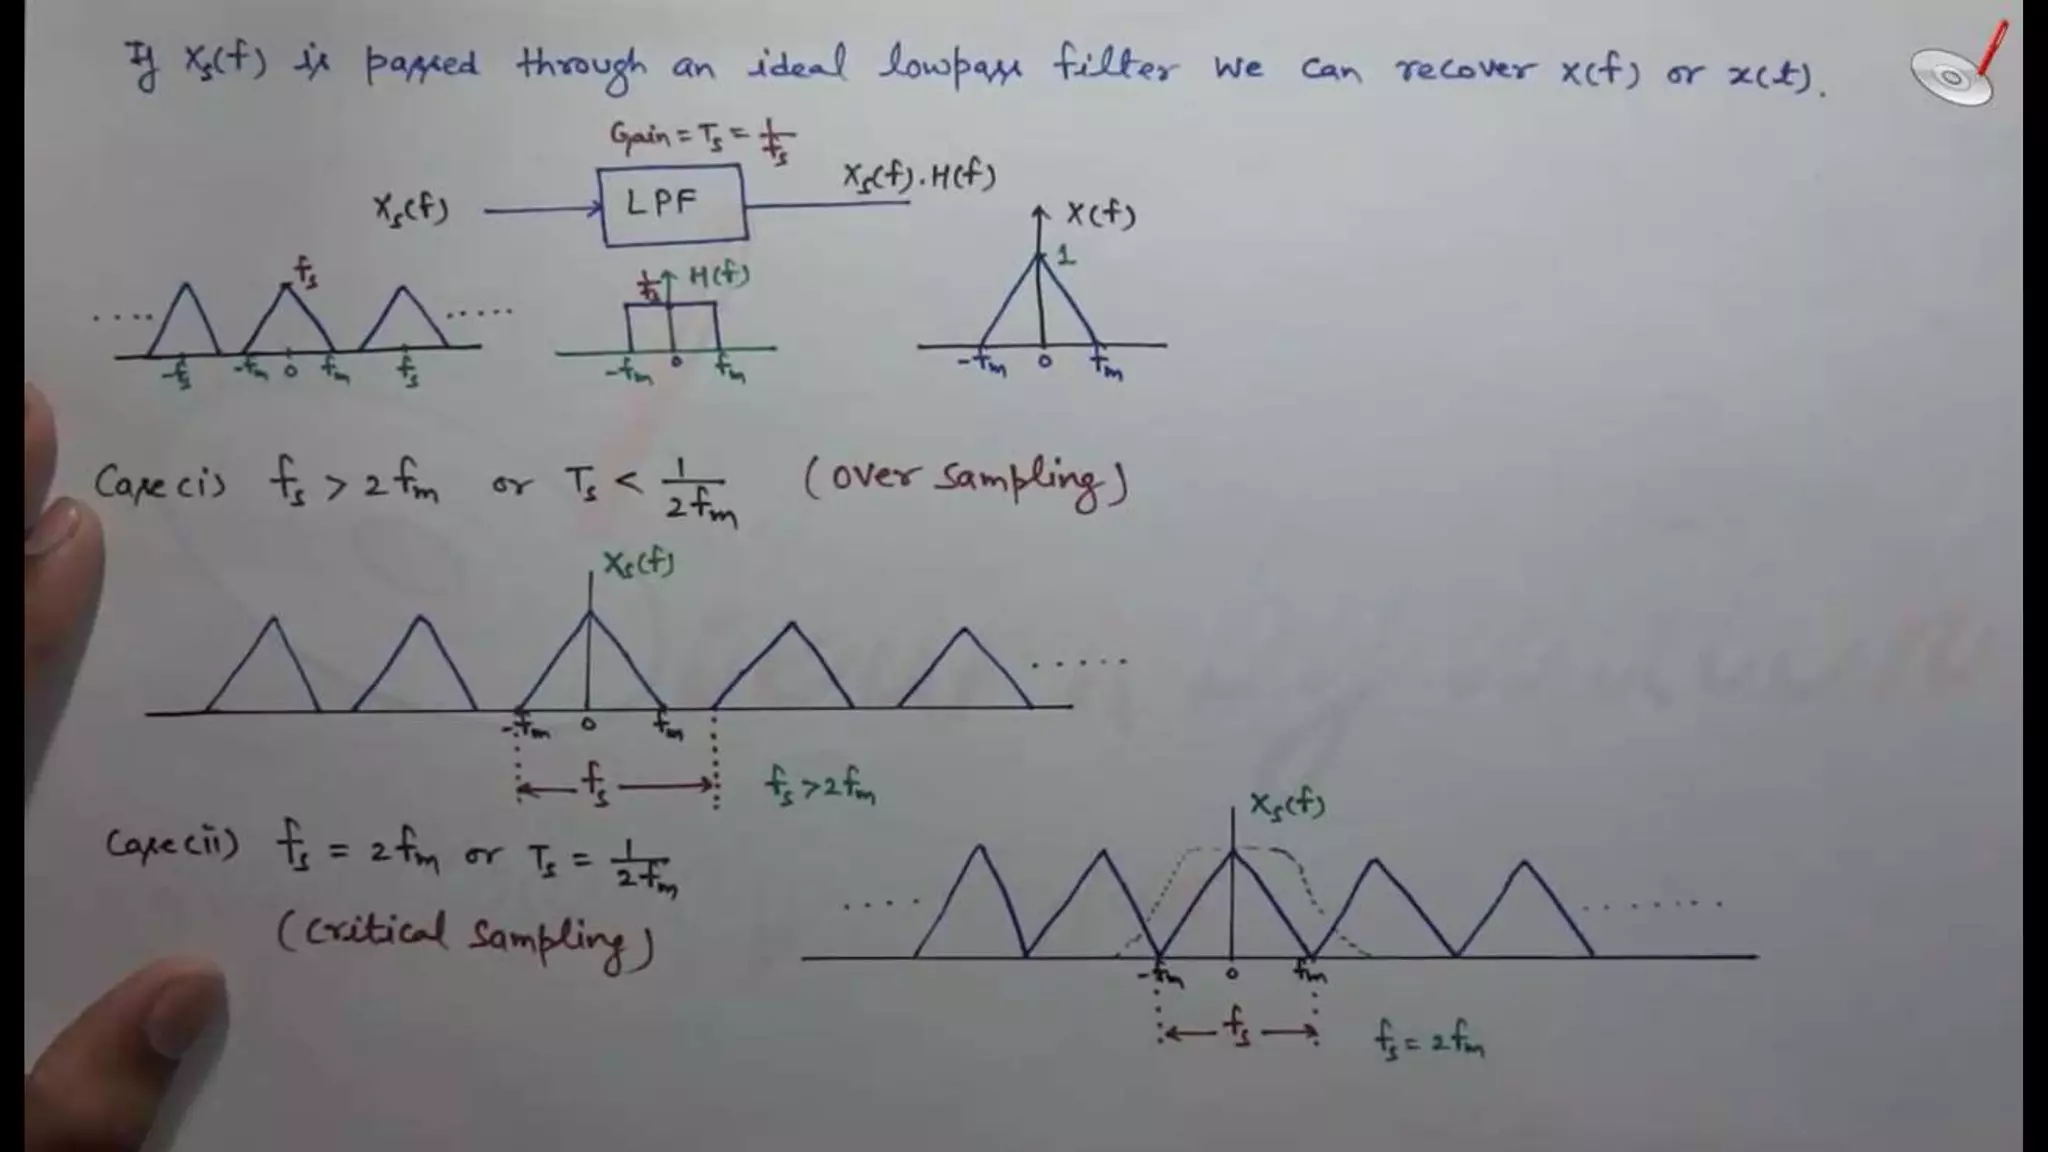 If Xs(f) is passed through an ideal lowpass filter we can recover X(f) or x(t).
Gain = Ts = 1/fs
Xs(f) LPF Xs(f).H(f)
fs
1/fs H(f)
X(f)
1
-fs -fm 0 fm fs
-fm 0 fm
-fm 0 fm
Case(i) fs > 2fm or Ts < 1/2fm (Over Sampling)
Xs(f)
-fm 0 fm
fs
fs>2fm
Case(ii) fs = 2fm or Ts = 1/2fm
(Critical Sampling)
Xs(f)
-fm 0 fm
fs
fs = 2fm